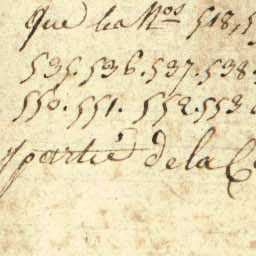 Que les Nos 518, 5
535. 536. 537. 538.
550. 551. 552. 553
partie de la C